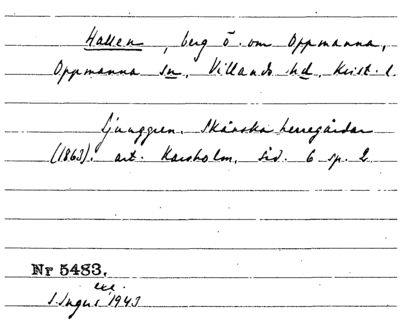 Hallen, berg ö. om Oppmanna,
Oppmanna sn, Villands hd, Krist. l.
Ljunggren, Skånska herregårdar
(1863). art. Karsholm, sid. 6 sp. 2
Nr 5483.
exc.
1943